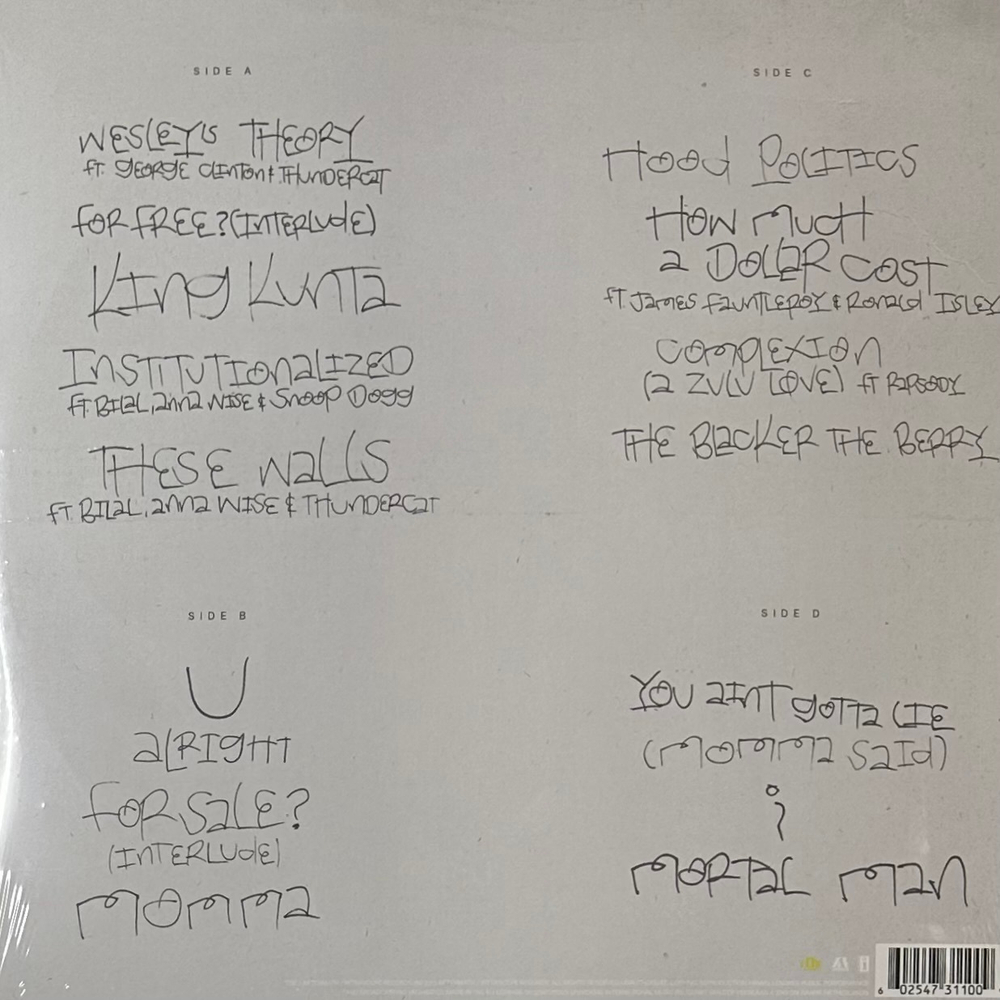 SIDE A
WESLEY'S THEORY
ft. GEORGE CLINTON & THUNDERCAT
FOR FREE? (INTERLUDE)
KING KUNTA
INSTITUTIONALIZED
ft. BILAL, ANNA WISE & SNOOP DOGG
THESE WALLS
ft. BILAL, ANNA WISE & THUNDERCAT
SIDE B
U
ALRIGHT
FOR SALE?
(INTERLUDE)
MOMMA
SIDE C
HOOD POLITICS
HOW MUCH
A DOLLAR COST
ft. JAMES FAUNTLEROY & RONALD ISLEY
COMPLEXION
(A ZULU LOVE) ft RAPSODY
THE BLACKER THE BERRY
SIDE D
YOU AINT GOTTA LIE
(MOMMA SAID)
i
MORTAL MAN
6 02547 31100